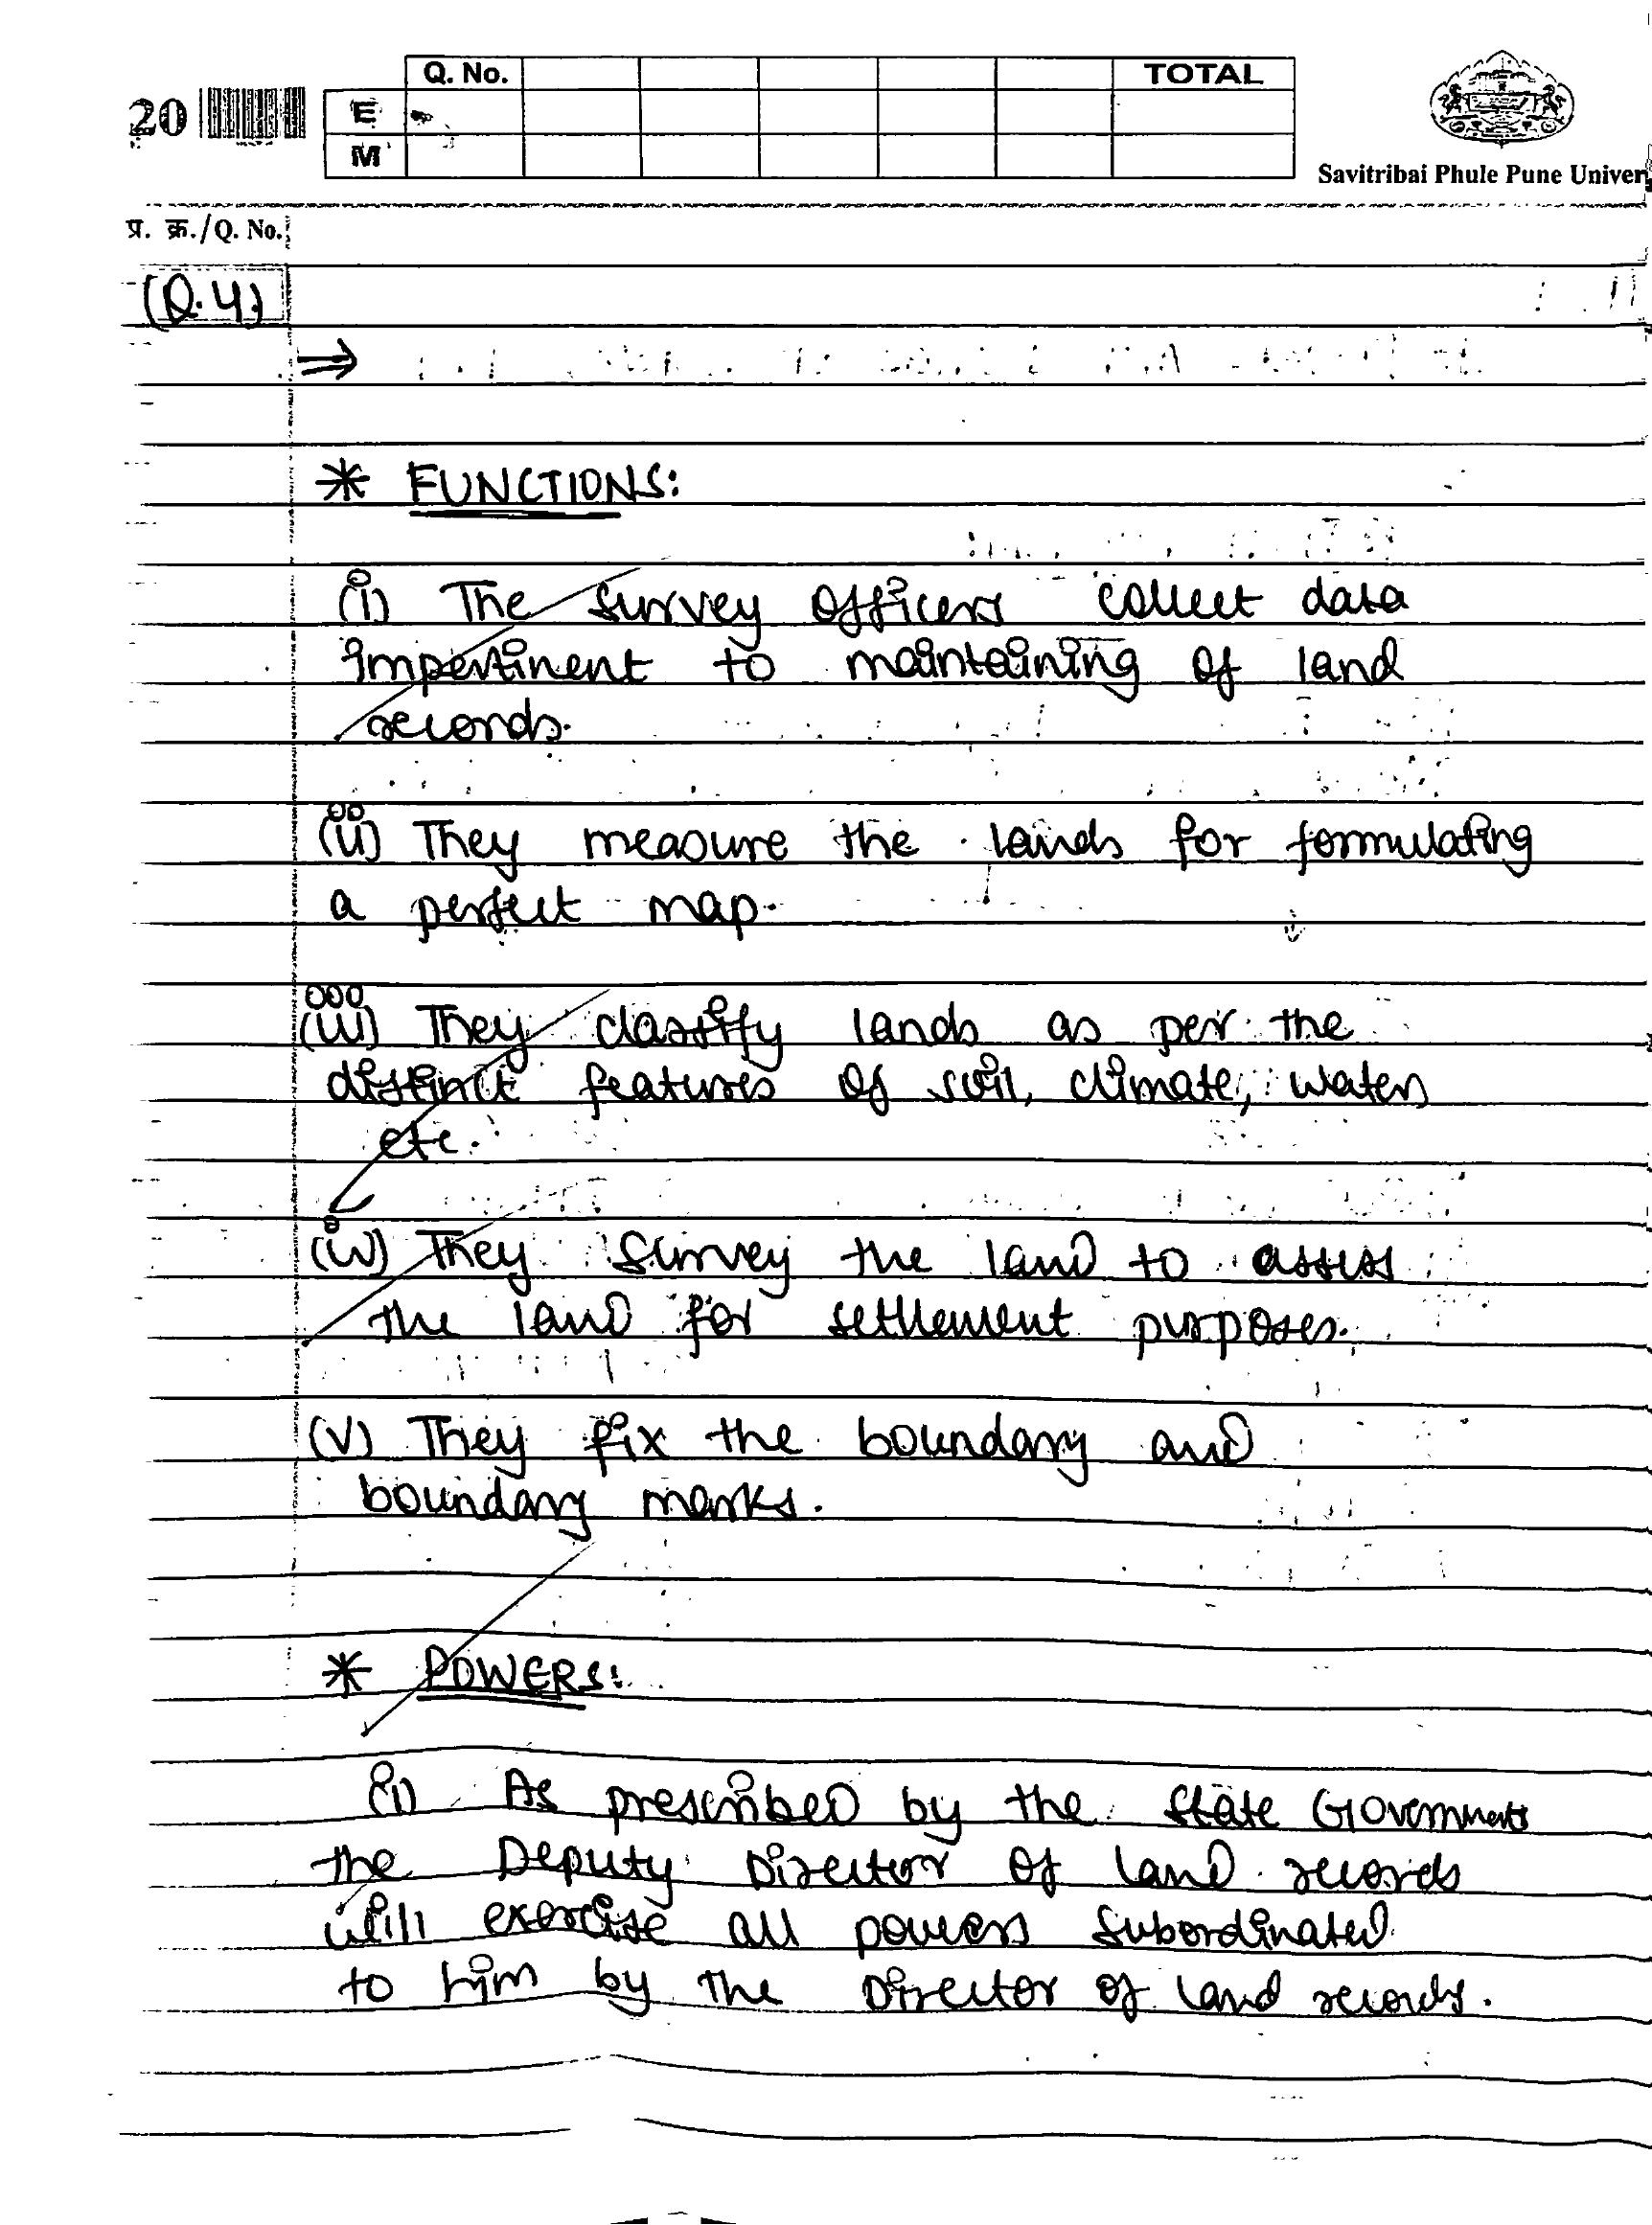 Q. No. TOTAL
20 E
M
Savitribai Phule Pune Univer
प्र. क्र./Q. No.
(Q.4)
⇒
* FUNCTIONS:
(i) The survey officers collect data
impertinent to maintaining of land
records.
(ii) They measure the lands for formulating
a perfect map.
(iii) They classify lands as per the
distinct features of soil, climate, water,
etc.
(iv) They survey the land to assess
the land for settlement purposes.
(v) They fix the boundary and
boundary marks.
* POWERS:
(i) As prescribed by the State Government
the Deputy Director of land records
will exercise all powers subordinated
to him by the Director of land records.